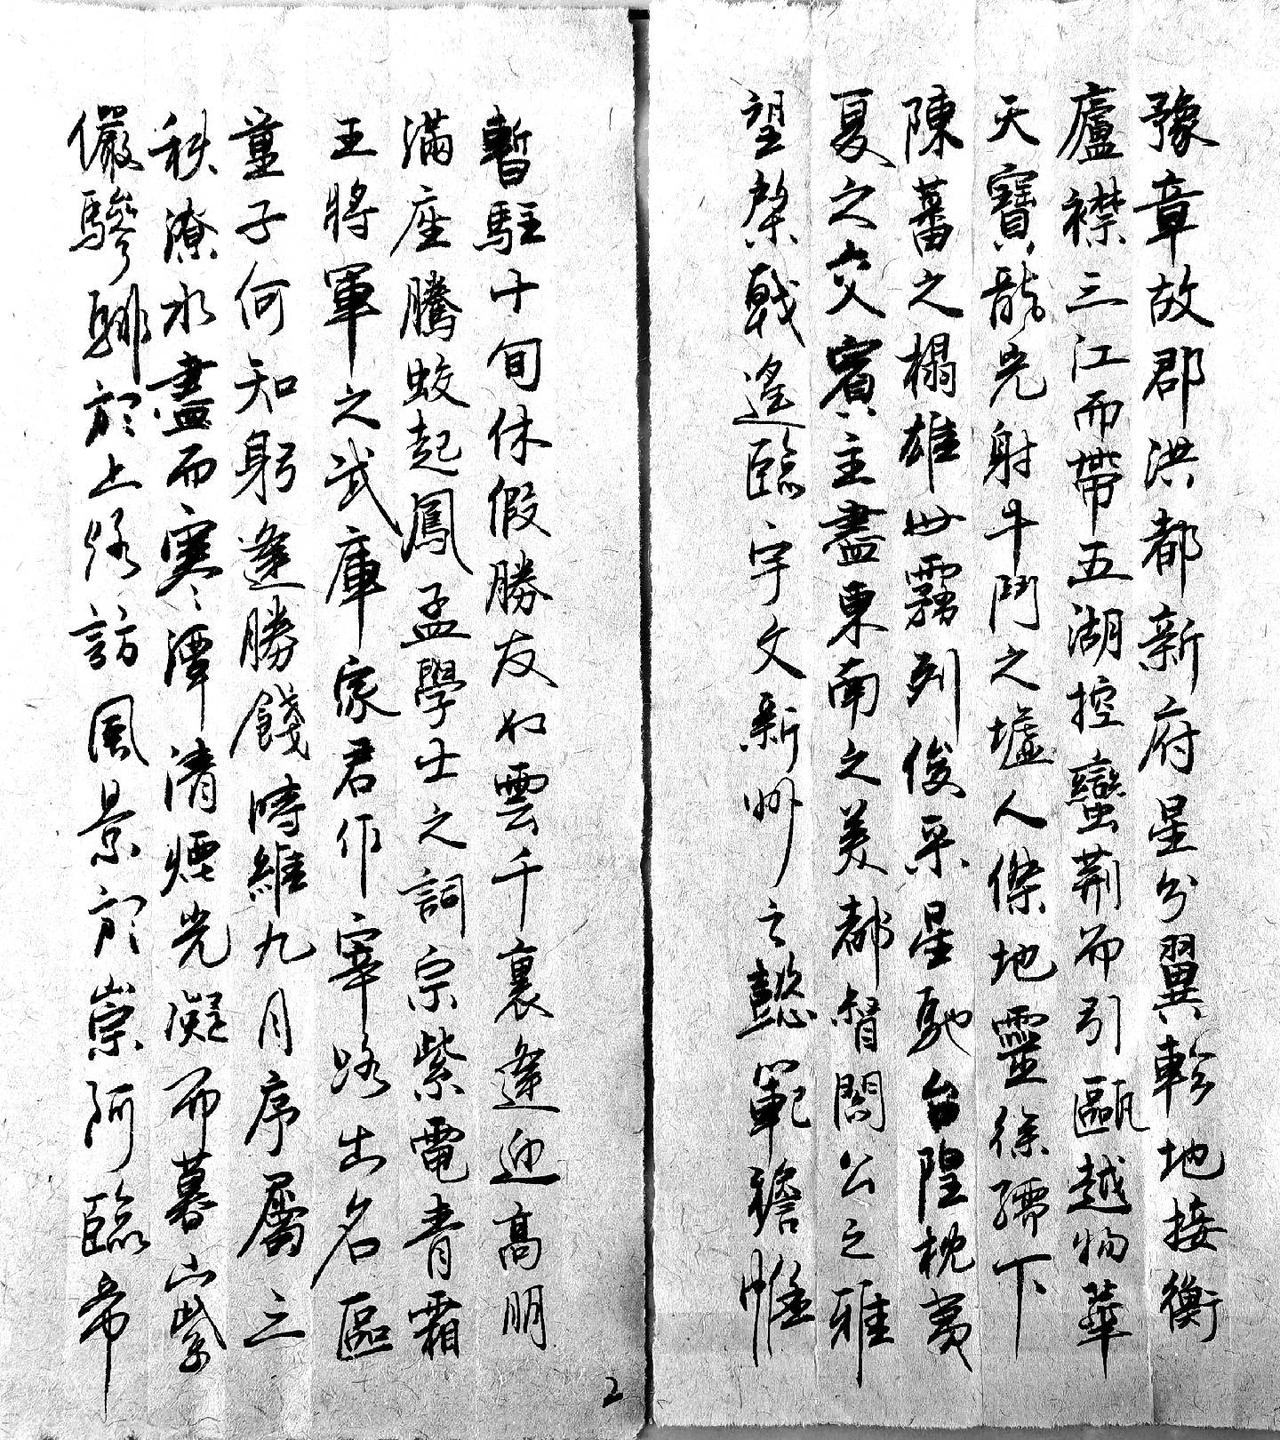 豫章故郡洪都新府星分翼軫地接衡
廬襟三江而帶五湖控蠻荊而引甌越物華
天寶龍光射牛鬥之墟人傑地靈徐孺下
陳蕃之榻雄州霧列俊采星馳台隍枕夷
夏之交賓主盡東南之美都督閻公之雅
望棨戟遙臨宇文新州之懿範襜帷
暫駐十旬休假勝友如雲千裏逢迎高朋
滿座騰蛟起鳳孟學士之詞宗紫電青霜
王將軍之武庫家君作宰路出名區
童子何知躬逢勝餞時維九月序屬三
秋潦水盡而寒潭清煙光凝而暮山紫
儼驂騑於上路訪風景於崇阿臨帝
2